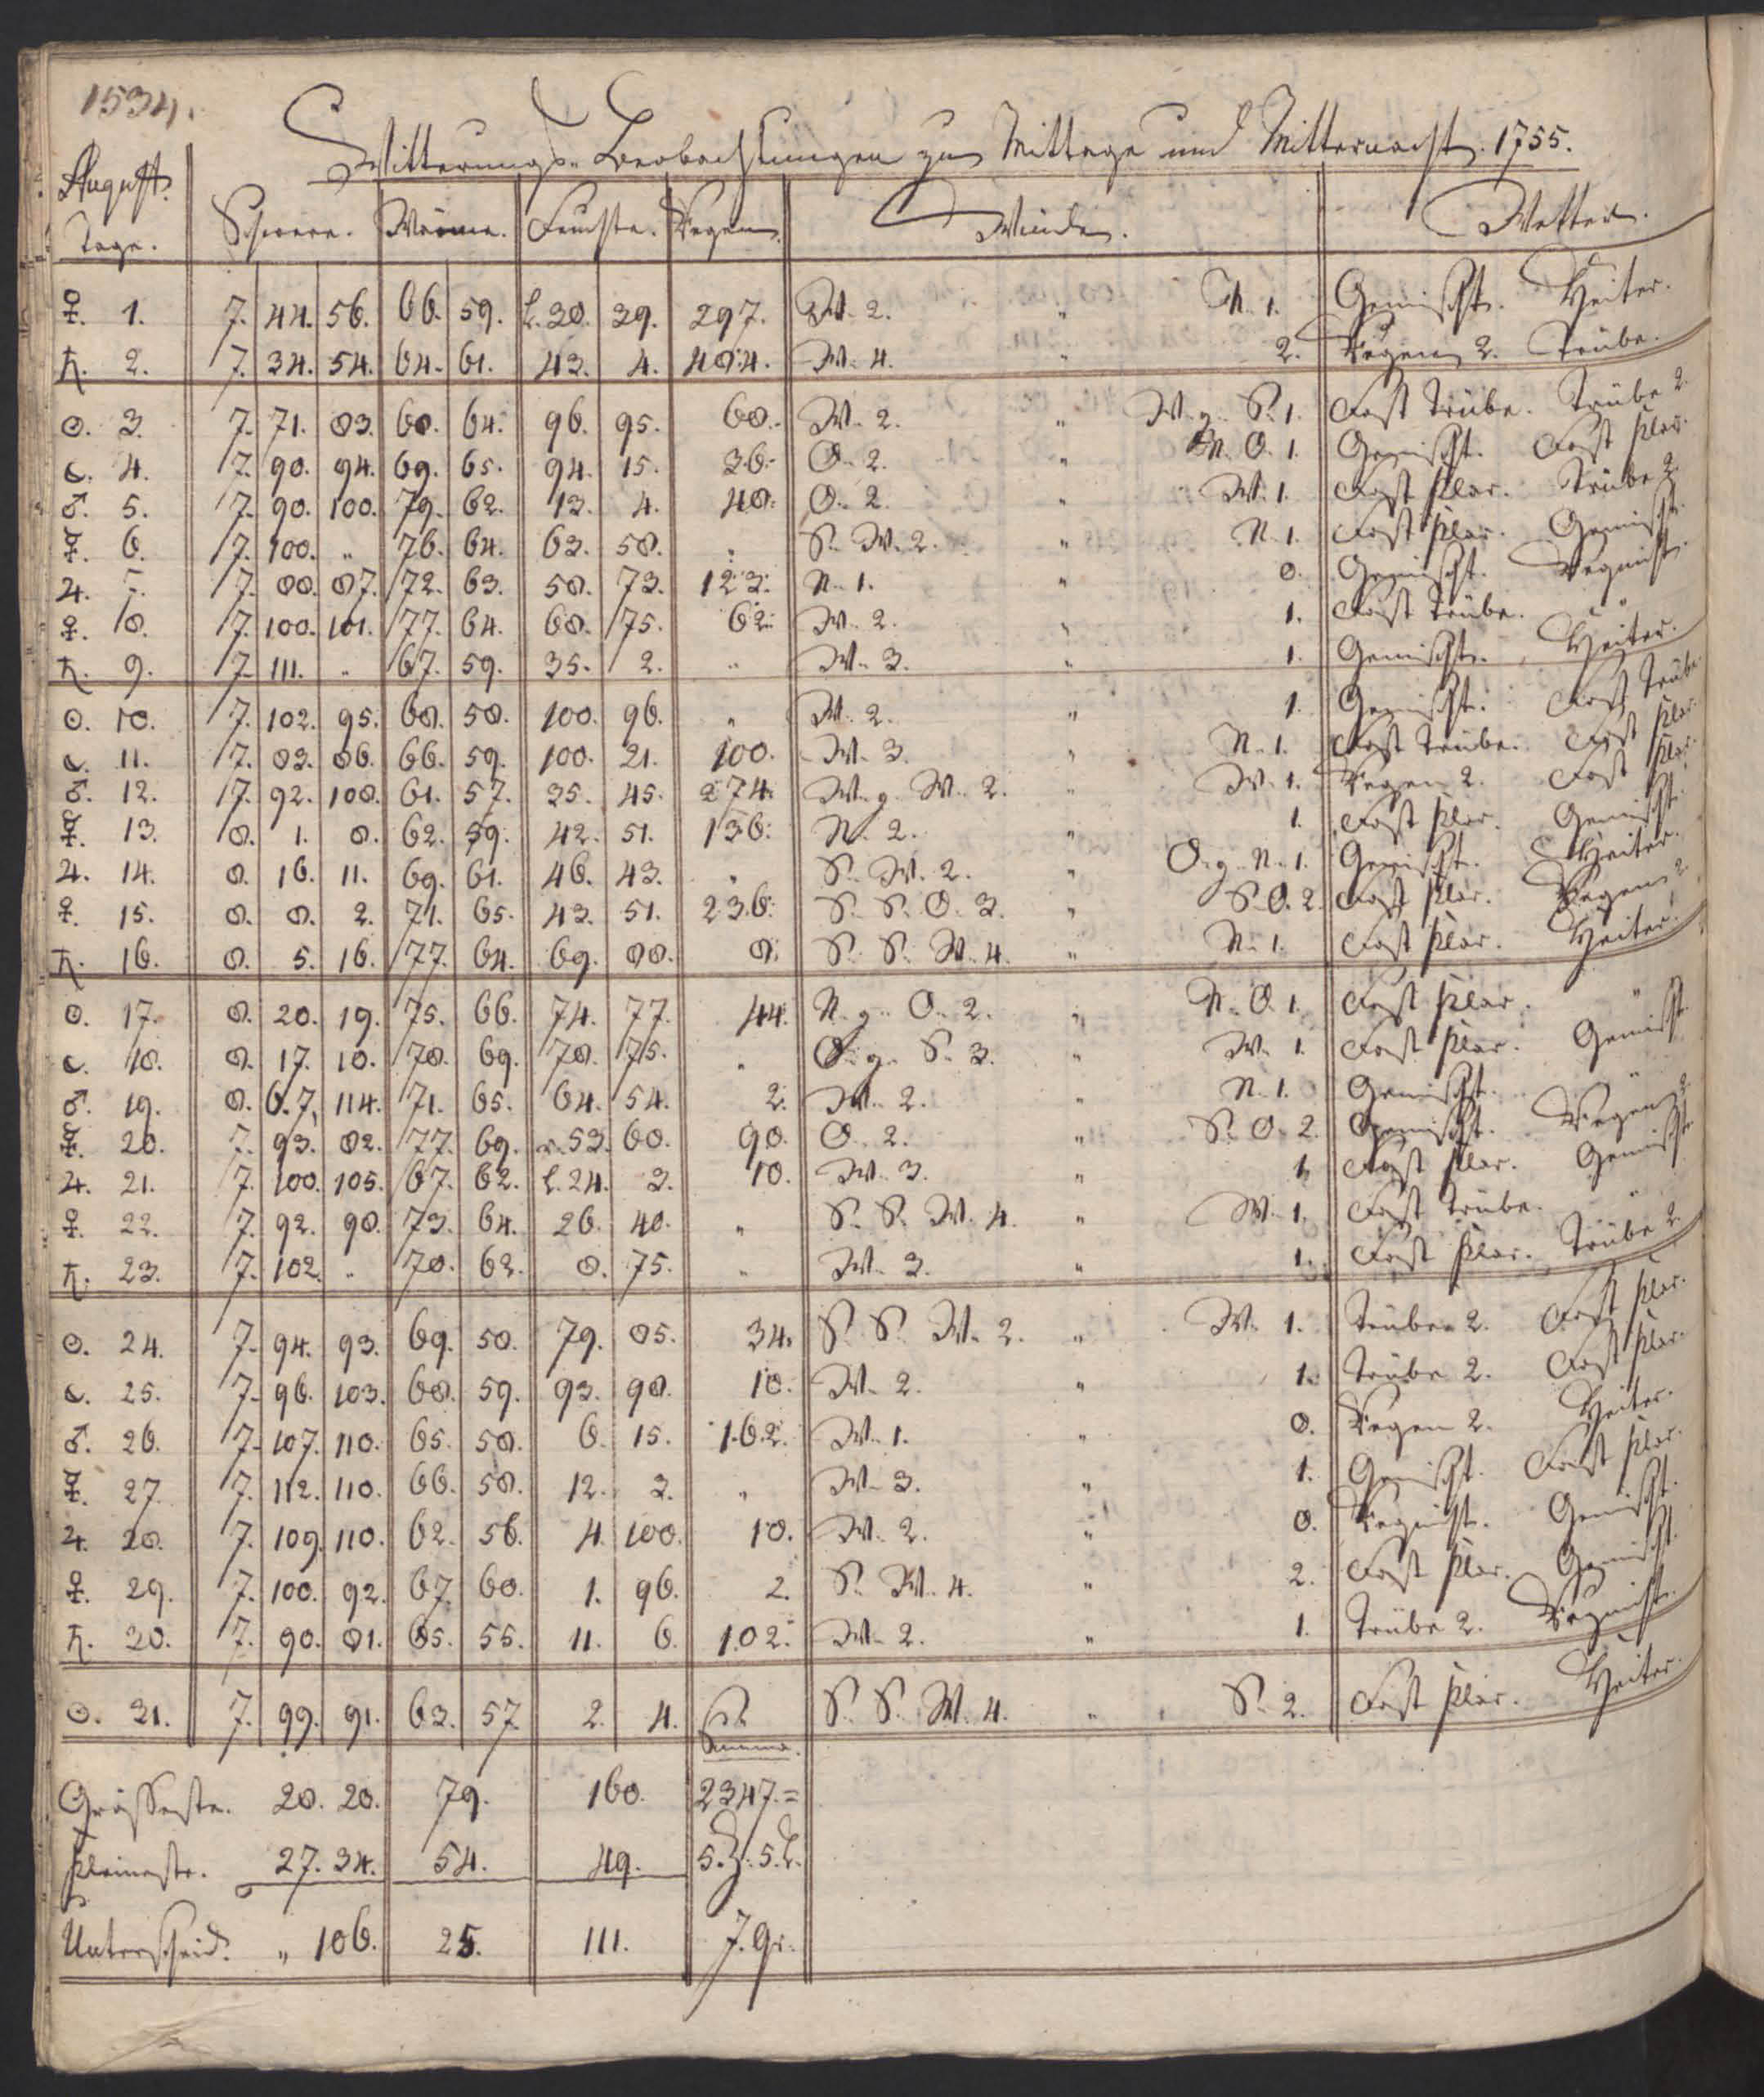 1534.
Witterungs-Beobachtungen zu Mittage und Mitternacht. 1755.
August.
Tage. Schwere. Wärme. Feuchte. Regen. Winde. Wetter.
♀. 1. 7. 44. 56. 66. 59. L. 38. 39. 297. W. 2. „ N. 1. Gemischt. Heiter.
♄. 2. 7. 34. 54. 64. 61. 43. 4. 484. W. 4. „ 2. Regen 2. Trübe.
☉. 3. 7. 71. 83. 68. 64. 96. 95. 60. W. 2. „ W. g. S. 1. Fast Trübe. Trübe 2.
☾. 4. 7. 90. 94. 69. 65. 94. 15. 36. O. 2. „ N. O. 1. Gemischt. Fast klar.
♂. 5. 7. 90. 100. 79. 62. 13. 4. 48. O. 2. „ W. 1. Fast klar. Trübe 2.
☿. 6. 7. 100. „ 76. 64. 63. 58. „ S. W. 2. „ N. 1. Fast klar. Gemischt.
♃. 7. 7. 88. 87. 72. 63. 58. 73. 123. N. 1. „ 0. Gemischt. Regnicht.
♀. 8. 7. 100. 101. 77. 64. 68. 75. 62. W. 2. „ 1. Fast Trübe. „
♄. 9. 7. 111. „ 67. 59. 35. 2. „ W. 3. „ 1. Gemischt. Heiter.
☉. 10. 7. 102. 95. 68. 58. 100. 96. „ W. 2. „ 1. Gemischt. Fast Trübe.
☾. 11. 7. 83. 86. 66. 59. 100. 21. 100. W. 3. „ N. 1. Fast Trübe. Fast klar.
♂. 12. 7. 92. 108. 61. 57. 35. 45. 274. W. g. W. 2. „ W. 1. Regen 2. Fast klar.
☿. 13. 8. 1. 8. 62. 59. 42. 51. 136. N. 2. „ 1. Fast klar. Gemischt.
♃. 14. 8. 16. 11. 69. 61. 46. 43. „ S. W. 2. „ O. g. N. 1. Gemischt. Heiter.
♀. 15. 8. 8. 2. 71. 65. 43. 51. 236. S. S. O. 3. „ S. O. 2. Fast klar. Regen 2.
♄. 16. 8. 5. 16. 77. 64. 69. 88. 8. S. S. W. 4. „ N. 1. Fast klar. Heiter.
☉. 17. 8. 20. 19. 75. 66. 74. 77. 44. N. g. O. 2. „ N. O. 1. Fast klar. „
☾. 18. 8. 17. 10. 78. 69. 78. 75. „ O. g. S. 3. „ W. 1. Fast klar. Gemischt.
♂. 19. 8. 6. 7. 114. 71. 65. 64. 54. 2. W. 2. „ N. 1. Gemischt. „
☿. 20. 7. 93. 82. 77. 69. r. 53. 60. 90. O. 2. „ S. O. 2. Gemischt. Regen 2.
♃. 21. 7. 100. 105. 67. 62. L. 24. 3. 10. W. 3. „ 1. Fast klar. Gemischt.
♀. 22. 7. 92. 98. 73. 64. 26. 40. „ S. S. W. 4. „ W. 1. Fast Trübe. „
♄. 23. 7. 102. „ 70. 62. 8. 75. „ W. 3. „ 1. Fast klar. Trübe 2.
☉. 24. 7. 94. 93. 69. 58. 79. 85. 34. S. S. W. 2. „ W. 1. Trübe 2. Fast klar.
☾. 25. 7. 96. 103. 68. 59. 93. 98. 18. W. 2. „ 1. Trübe 2. Fast klar.
♂. 26. 7. 107. 110. 65. 58. 6. 15. 162. W. 1. „ 0. Regen 2. Heiter.
☿. 27. 7. 112. 110. 66. 58. 12. 3. „ W. 3. „ 1. Gemischt. Fast klar.
♃. 28. 7. 109. 110. 62. 56. 4. 100. 10. W. 2. „ 0. Regnicht. Gemischt.
♀. 29. 7. 100. 92. 67. 60. 1. 96. 2. S. W. 4. „ 2. Fast klar. Gemischt.
♄. 30. 7. 90. 81. 65. 55. 11. 6. 102. W. 2. „ 1. Trübe 2. Regnicht.
☉. 31. 7. 99. 91. 63. 57. 2. 4. S. S. W. 4. „ S. 2. Fast klar. Heiter.
Summa.
Grösseste. 28. 20. 79. 160. 2347. =
Kleineste. 27. 34. 54. 49. 5. Z. 5. L.
Unterscheid. „ 106. 25. 111. 7. gr.